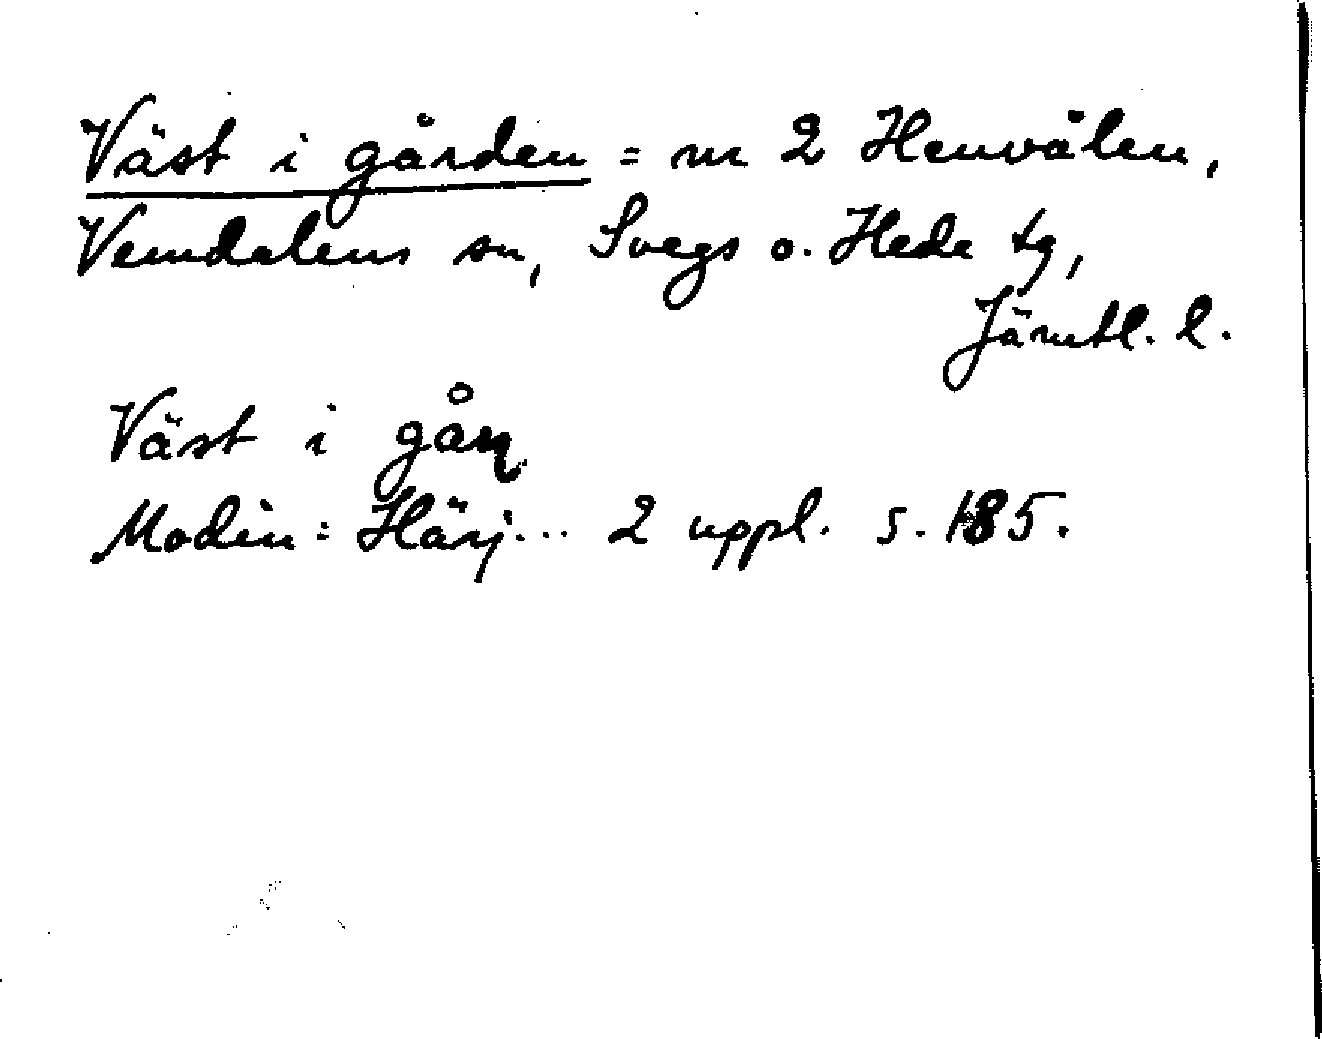 Väst i gården = nr 2 Henvålen,
Vemdalens sn, Svegs o. Hede tg,
Jämtl. l.
Väst i gårn
Modin: Härj... 2 uppl. s. 185.